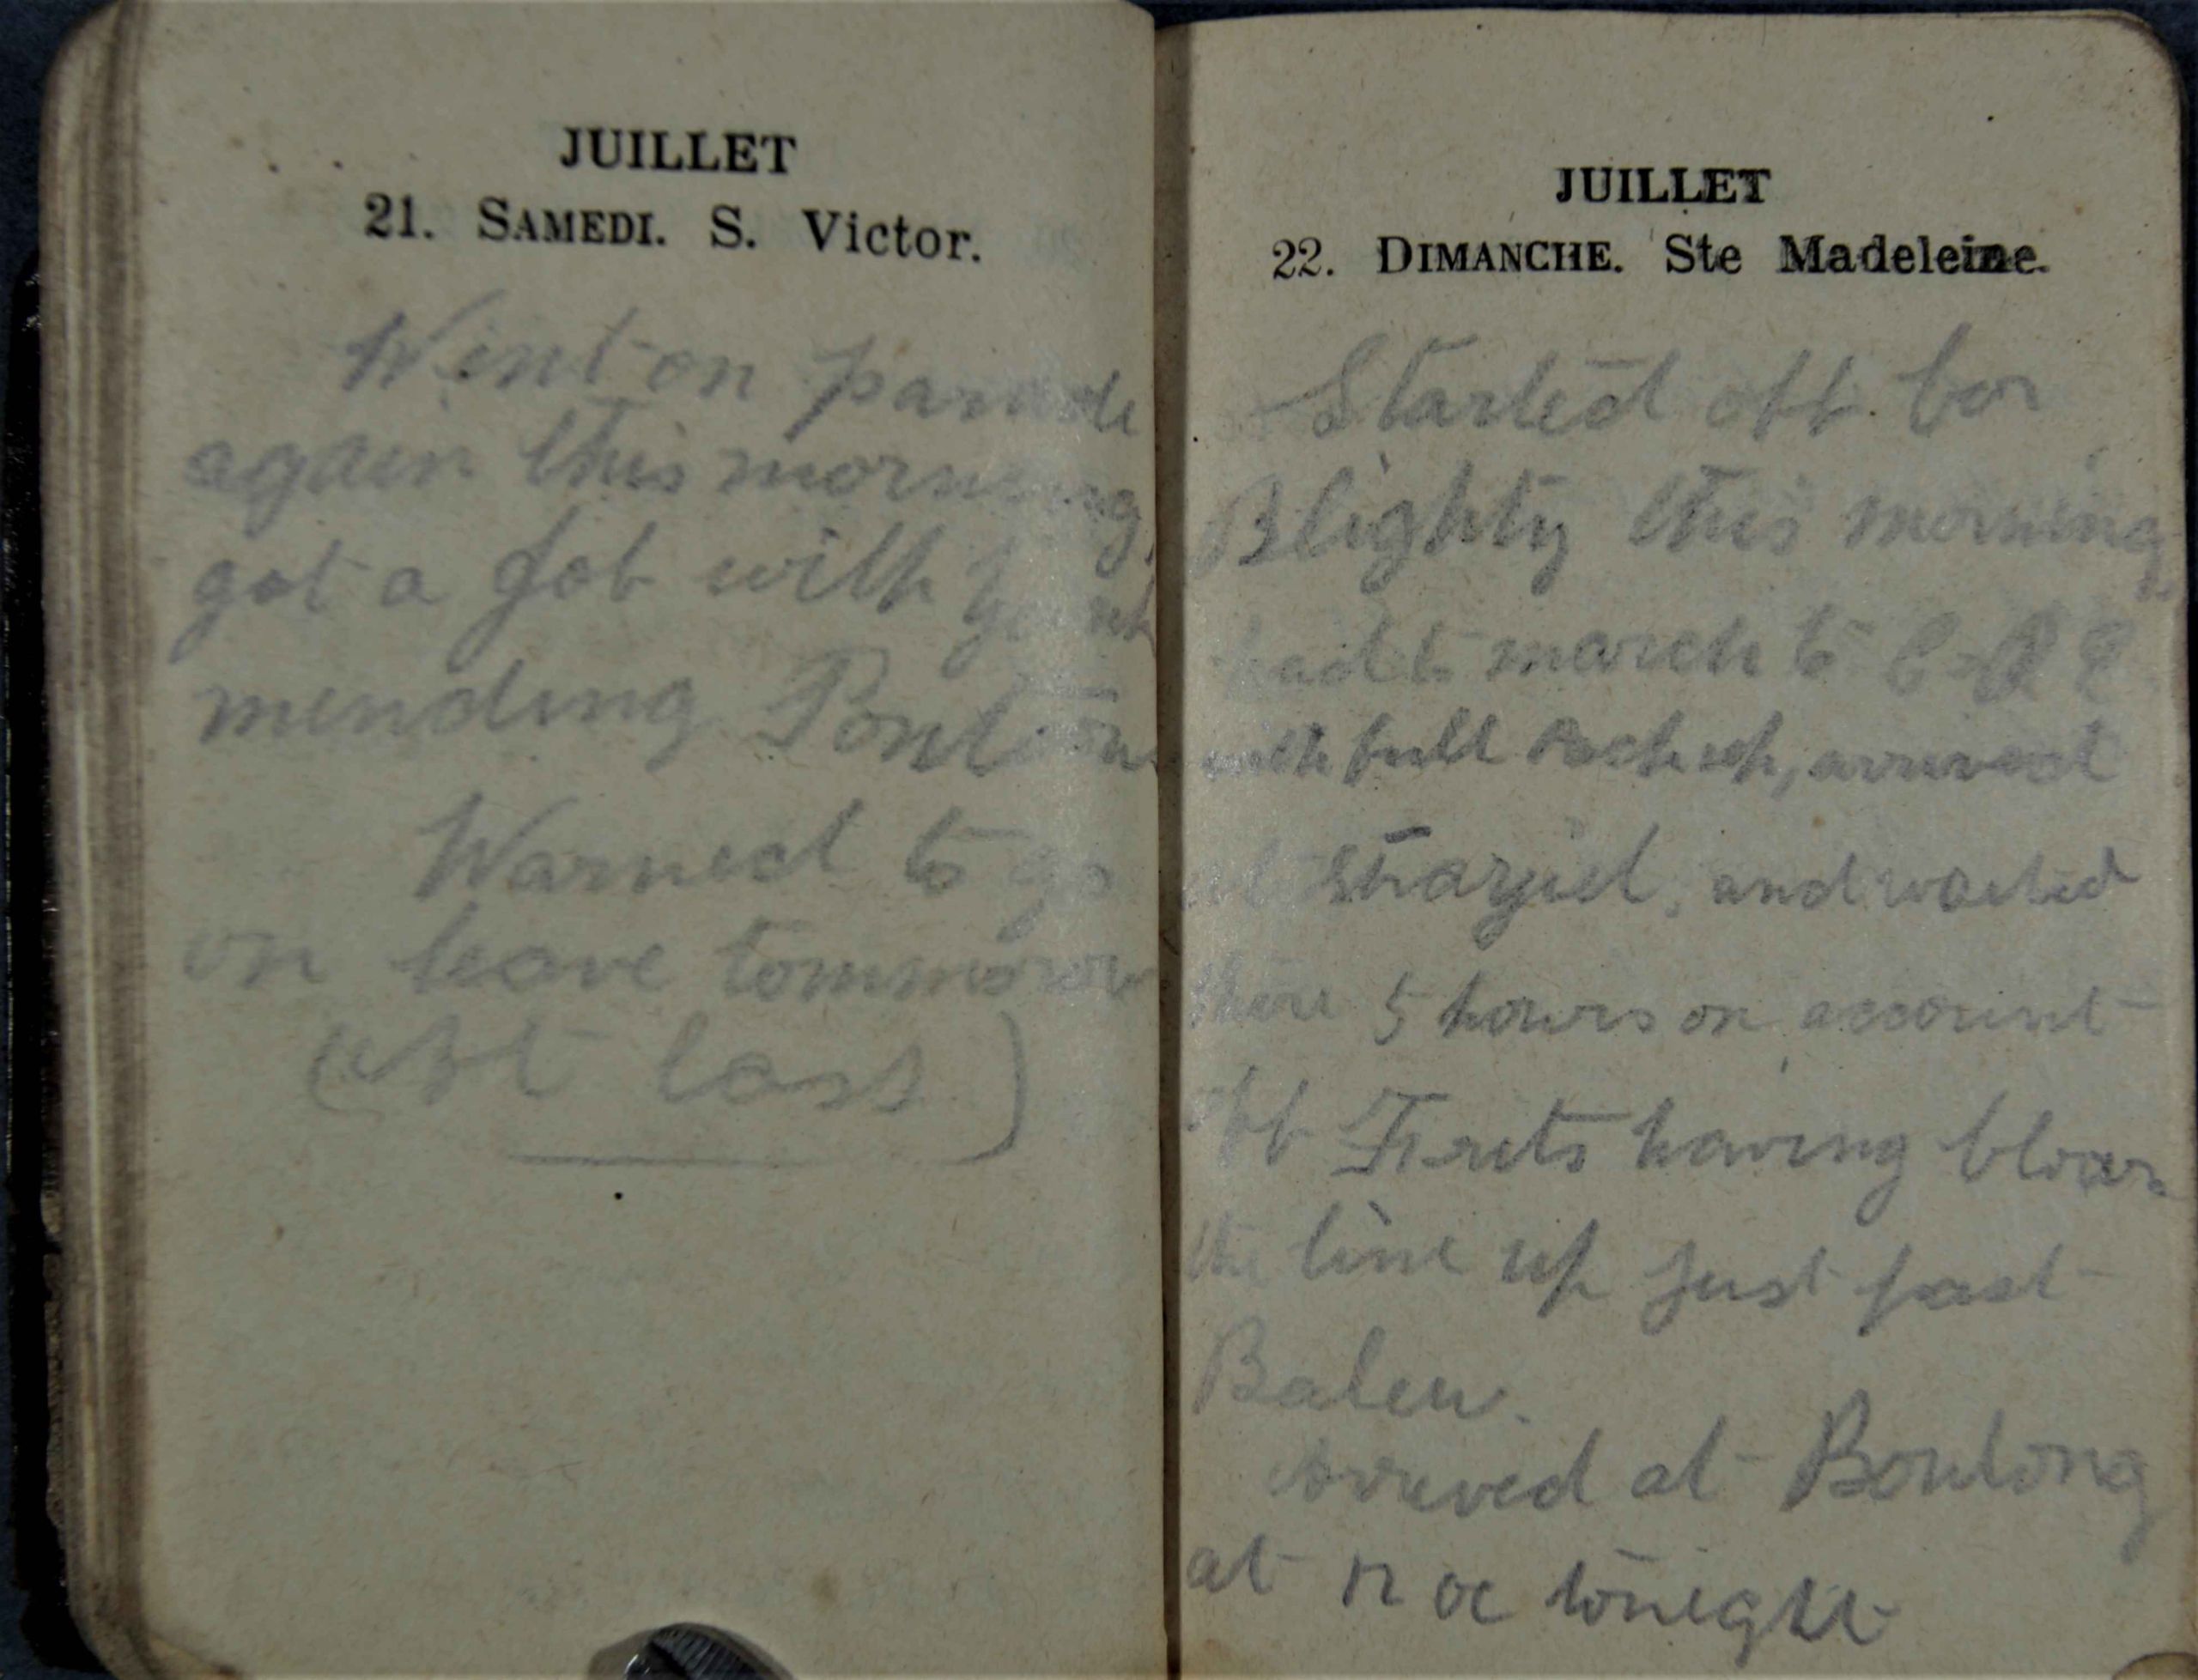 JUILLET
21. SAMEDI. S. Victor.
Went on parade
again this morning,
got a Job with
mending Pontoon
Warned to go
on leave tommorow
(At last)
JUILLET
22. DIMANCHE. Ste Madeleine.
Started off for
Blighty this morning
had to march to
with full Pack up, arrived
at and waited
there 5 hours on account
off Frits having blown
the line up just past
Baleu.
Arrived at Boulong
at 12 oc tonight